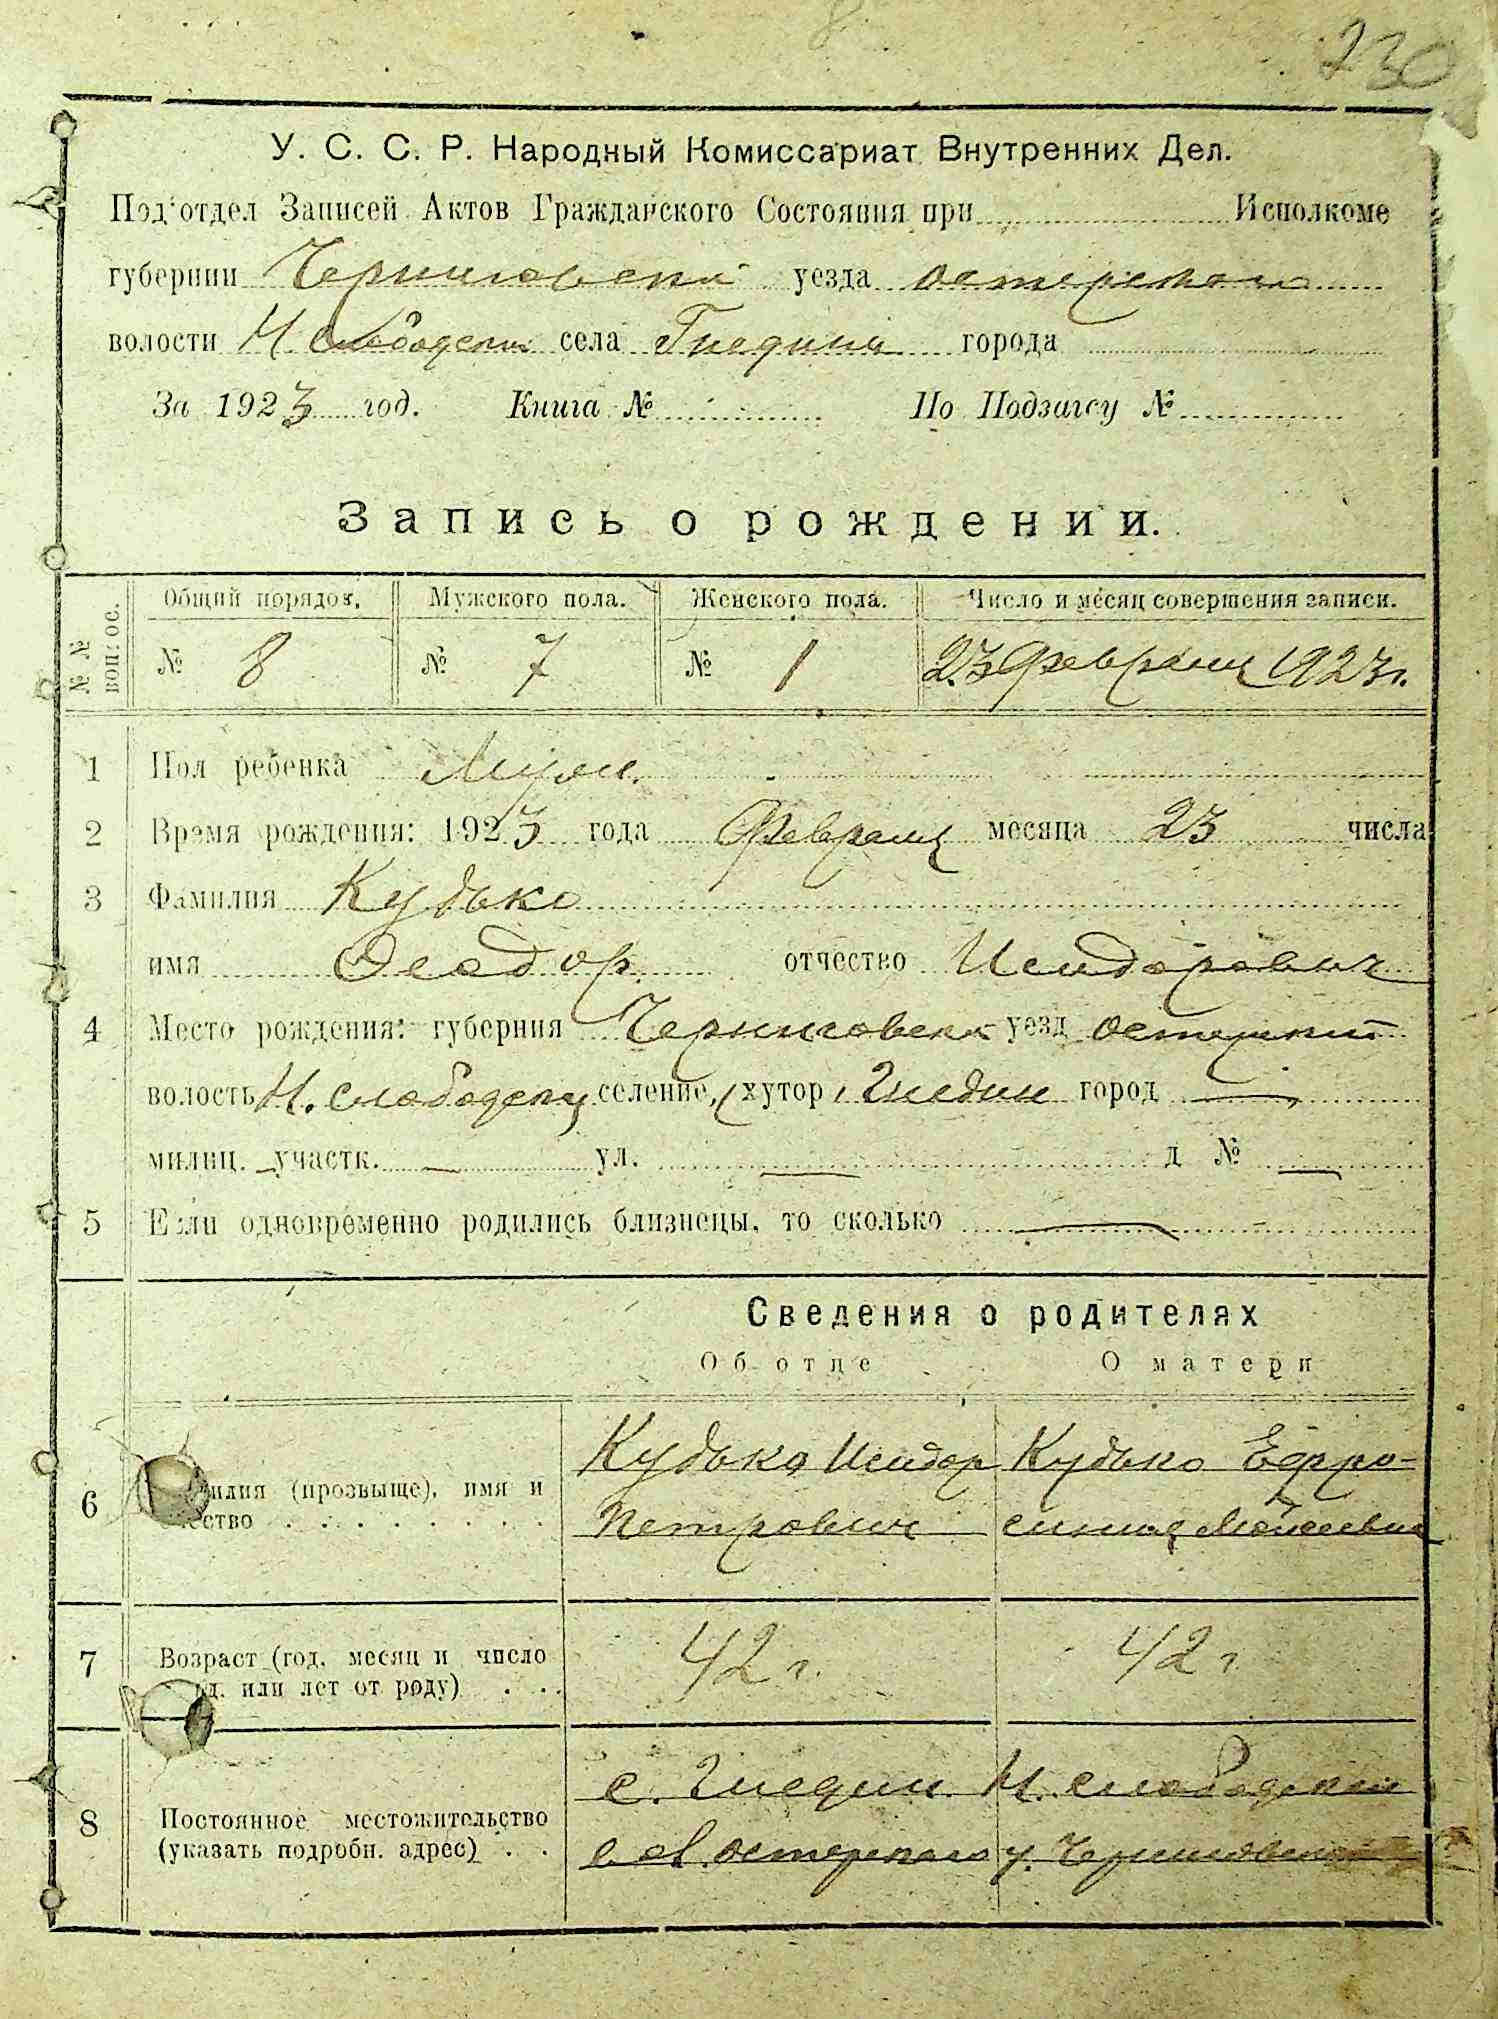 230
У. С. С. Р. Народный Комиссариат Внутренних Дел.
Под'отдел Записей Актов Гражданского Состояния при Исполкоме
губернии Черниговской уезда Остерского
волости Н. Слободской села Гнедина города
За 1923 год. Книга № По Подзагсу №
Запись о рождении.
№ № вопрос. Общий порядок. Мужского пола. Женского пола. Число и месяц совершения записи.
№ 8 № 7 № 1 23 февраля 1923 г.
1 Пол ребенка Муж.
2 Время рождения: 1923 года Февраля месяца 23 числа
3 Фамилия Кудько
имя Феодор отчество Исидорович
4 Место рождения: губерния Черниговск уезд Остерский
волость Н. Слободская селение, хутор Гнедин город —
милиц. участк. — ул. — д №  —
5 Если одновременно родились близнецы, то сколько —
Сведения о родителях
Об отце О матери
Кудько Исидор Кудько Ефро-
6 милия (прозвыще), имя и
чество Петрович синия Моисеевна
7 Возраст (год, месяц и число 42 г. 42 г
д. или лет от роду)
с. Гнедин Н. Слободской
8 Постоянное местожительство
(указать подробн. адрес) Остерского у. Черниговской